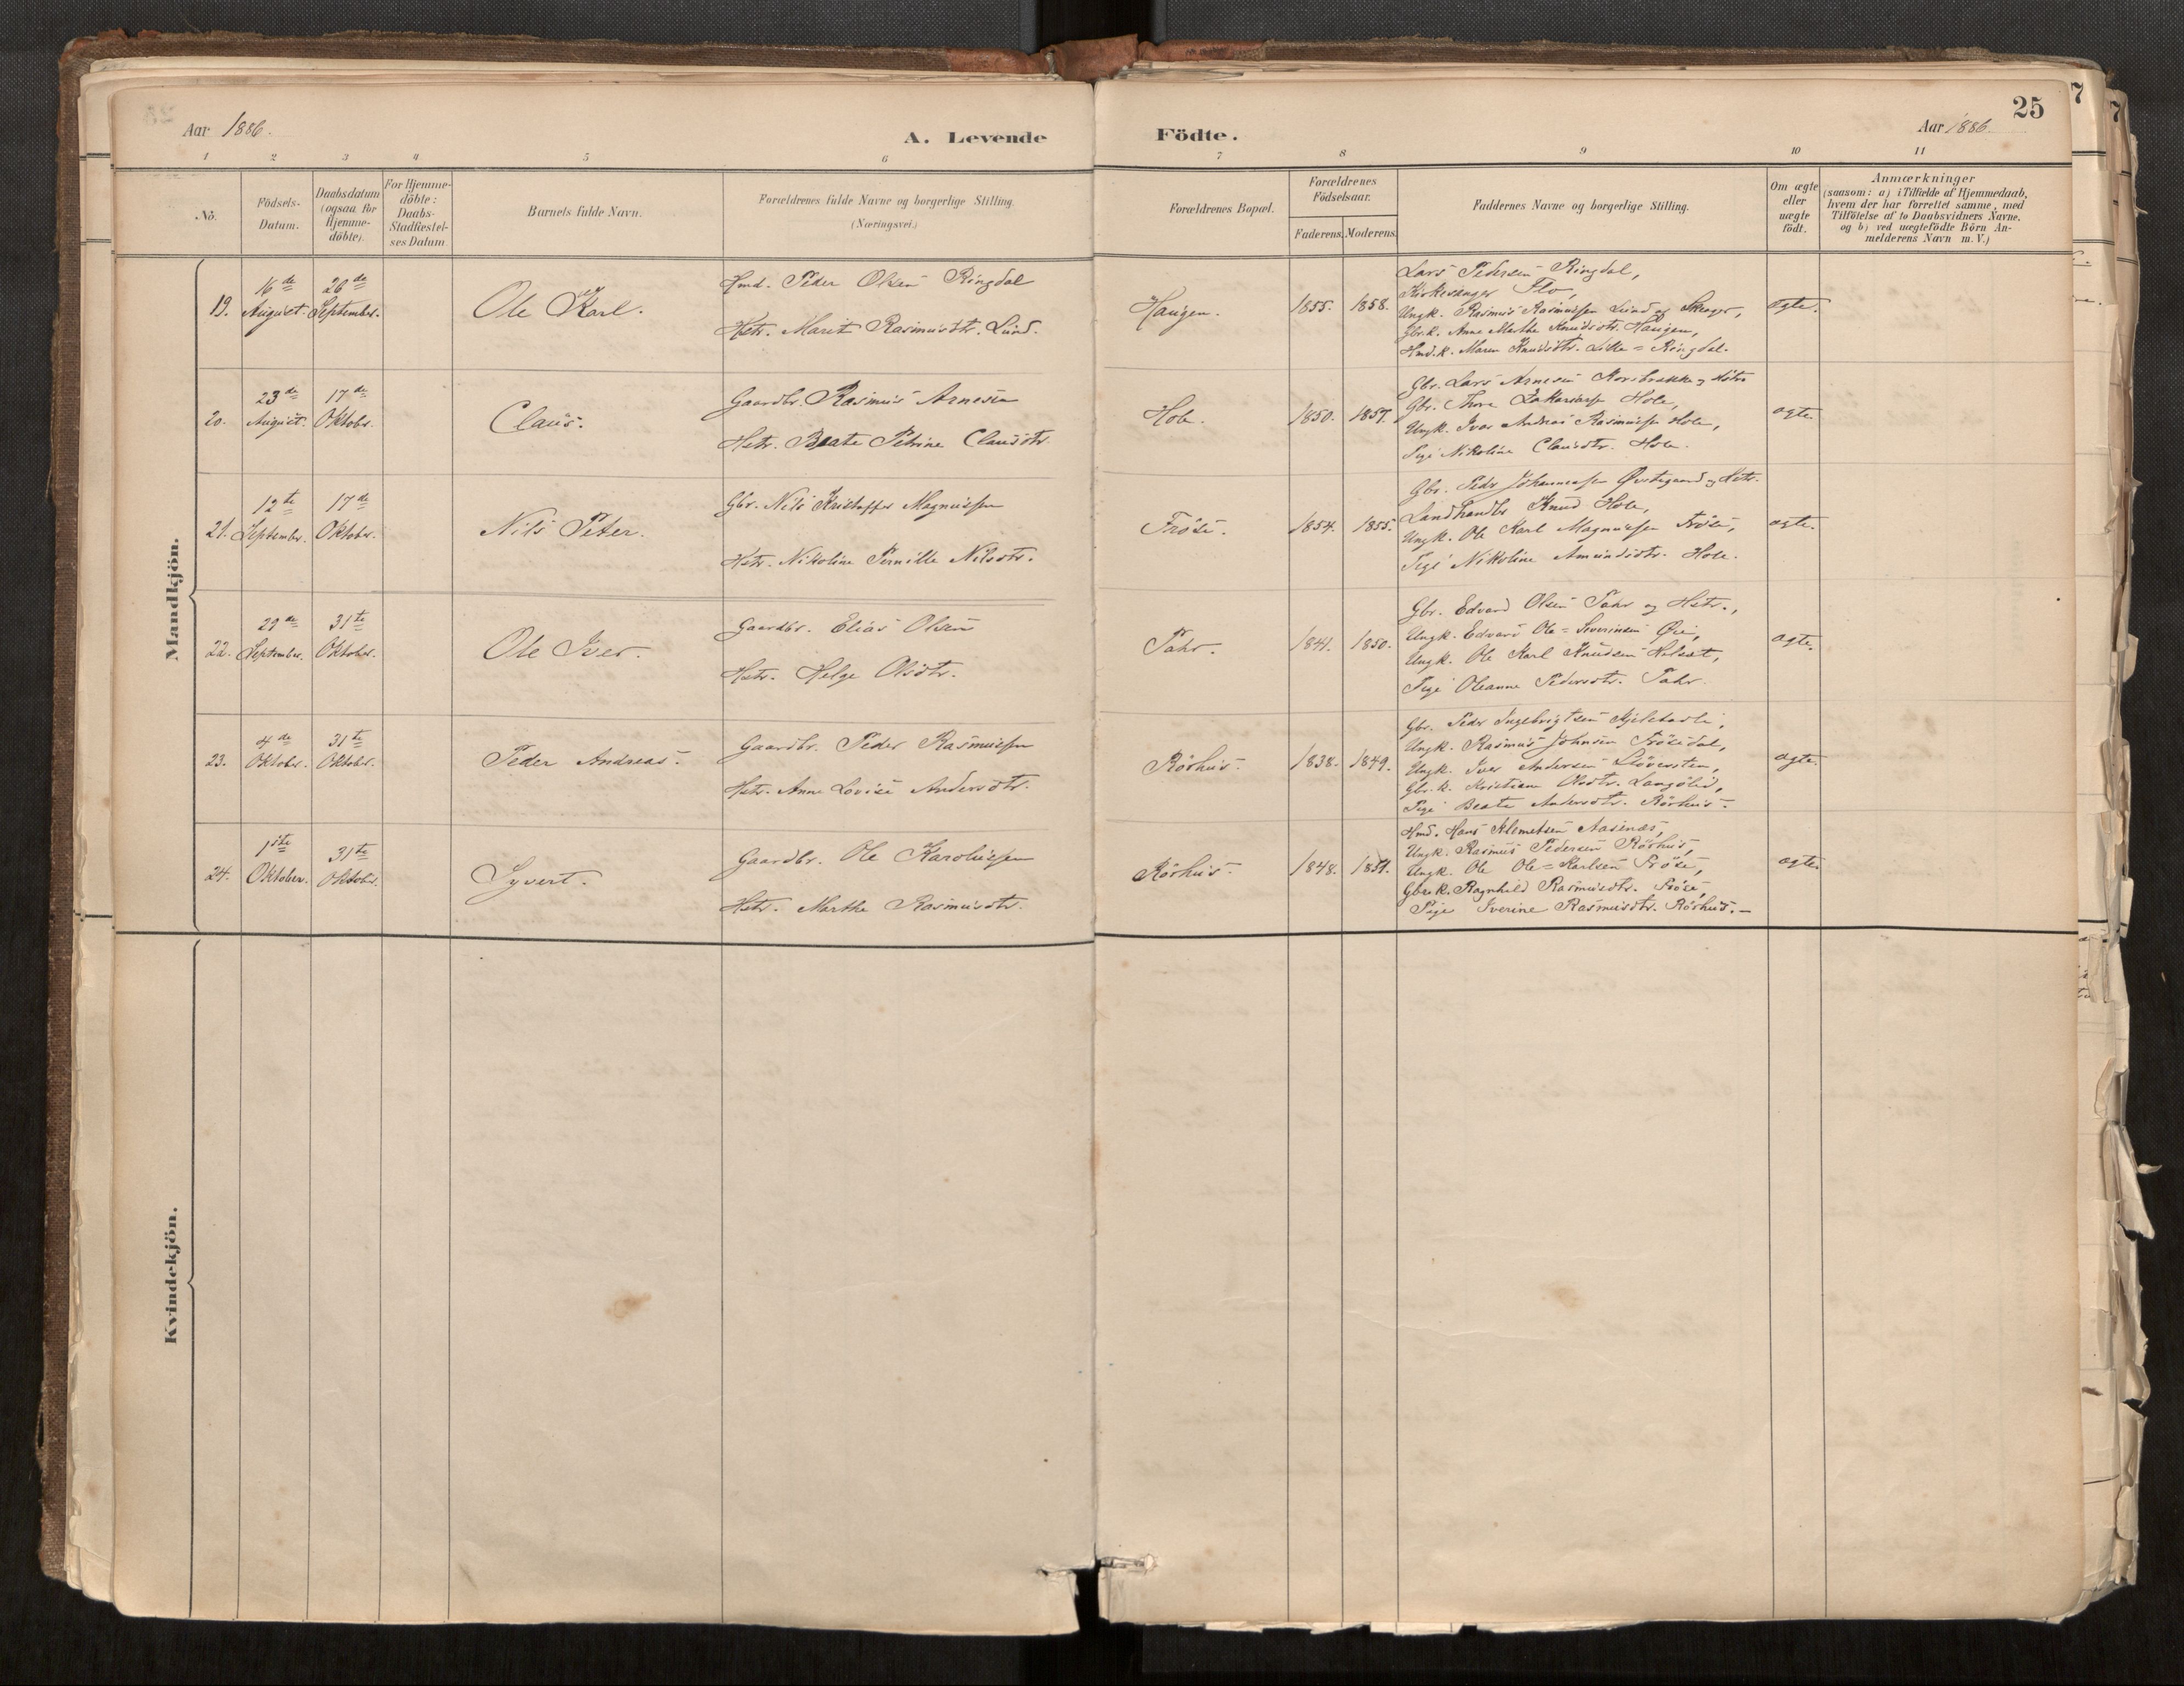 Aar 1886.
A. Levende
Födte.
Aar 1886.
25
1 2 3 4 5 6 7 8 9 10 11
No.
Födsels-
Datum.
Daabsdatum
(ogsaa for
Hjemme-
döbte).
For Hjemme-
döbte:
Daabs-
Stadfæstel-
ses Datum
Barnets fulde Navn.
Forældrenes fulde Navne og borgerlige Stilling.
(Næringsvei.)
Forældrenes Bopæl.
Forældrenes
Födselsaar.
Faderens. Moderens.
Faddernes Navne og borgerlige Stilling.
Om ægte
eller
uægte
födt.
Anmærkninger
(saasom: a) i Tilfælde af Hjemmedaab,
hvem der har forrettet samme, med
Tilföielse af to Daabsvidners Navne.
og b) ved uægtefödte Börn An-
melderens Navn m. V.)
Mandkjön.
19.
16de
August.
26de
September.
Ole Karl.
Hmd. Peder Olsen Ringdal
Hstr. Marit Rasmusdtr. Lund.
Haugen.
1855. 1858.
Lars Pedersen Ringdal,
Kirkesanger Flo,
Ungk. Rasmus Rasmussen Lund og
Gbr.k. Anne Marthe Knudsdtr. Haugen,
Hmd.k. Maren Knudsdtr. Lille=Ringdal.
ægte.
20.
23de
August.
17de
Oktober.
Claus.
Gaardbr. Rasmus Arnesen
Hstr. Beate Petrine Clausdtr.
Hole.
1850. 1857.
Gbr. Lars Arnesen Korsbrække og Hstr.
Gbr. Thore Hole,
Ungk. Iver Andreas Rasmussen Hole,
Pige Nikoline Clausdtr. Hole.
ægte.
21.
12te
September.
17de
Oktober.
Nils Peter.
Gbr. Nils Kristoffer Magnussen
Hstr. Nikoline Pernille Nilsdtr.
Fröse.
1854. 1855.
Gbr. Peder Johannessen og Hstr.
Landhandler Knud Hole,
Ungk. Ole Karl Magnussen Fröse,
Pige Nikoline Amundsdtr. Hole.
ægte.
22.
29de
September.
31te
Oktober.
Ole Iver.
Gaardbr. Elias Olsen
Hstr. Helge Olsdtr.
Tahr.
1841. 1850.
Gbr. Edvard Olsen Tahr og Hstr.,
Ungk. Edvard Ole=Severinsen Öie,
Ungk. Ole Karl Knudsen Helset,
Pige Oleanne Pedersdtr. Tahr.
ægte.
23.
4de
Oktober.
31te
Oktober.
Peder Andreas.
Gaardbr. Peder Rasmussen
Hstr. Anne Lovise Andersdtr.
Rörhus.
1838. 1849.
Gbr. Peder Ingebrigtsen
Ungk. Rasmus Johnsen Frösedal,
Ungk. Iver Andersen
Gbr.k. Kristiane Olsdtr. Langölid,
Pige Beate Andersdtr. Rörhus.
ægte.
24.
1ste
Oktober.
31te
Oktober.
Syvert.
Gaardbr. Ole Karolussen
Hstr. Marthe Rasmusdtr.
Rörhus.
1848. 1854.
Hmd. Hans Klemetsen Aasenæs,
Ungk. Rasmus Pedersen Rörhus,
Ungk. Ole Ole=Karlsen Fröse,
Gbr.k. Ragnhild Rasmusdtr. Fröse,
Pige Iverine Rasmusdtr. Rörhus.—
ægte.
Kvindekjön.